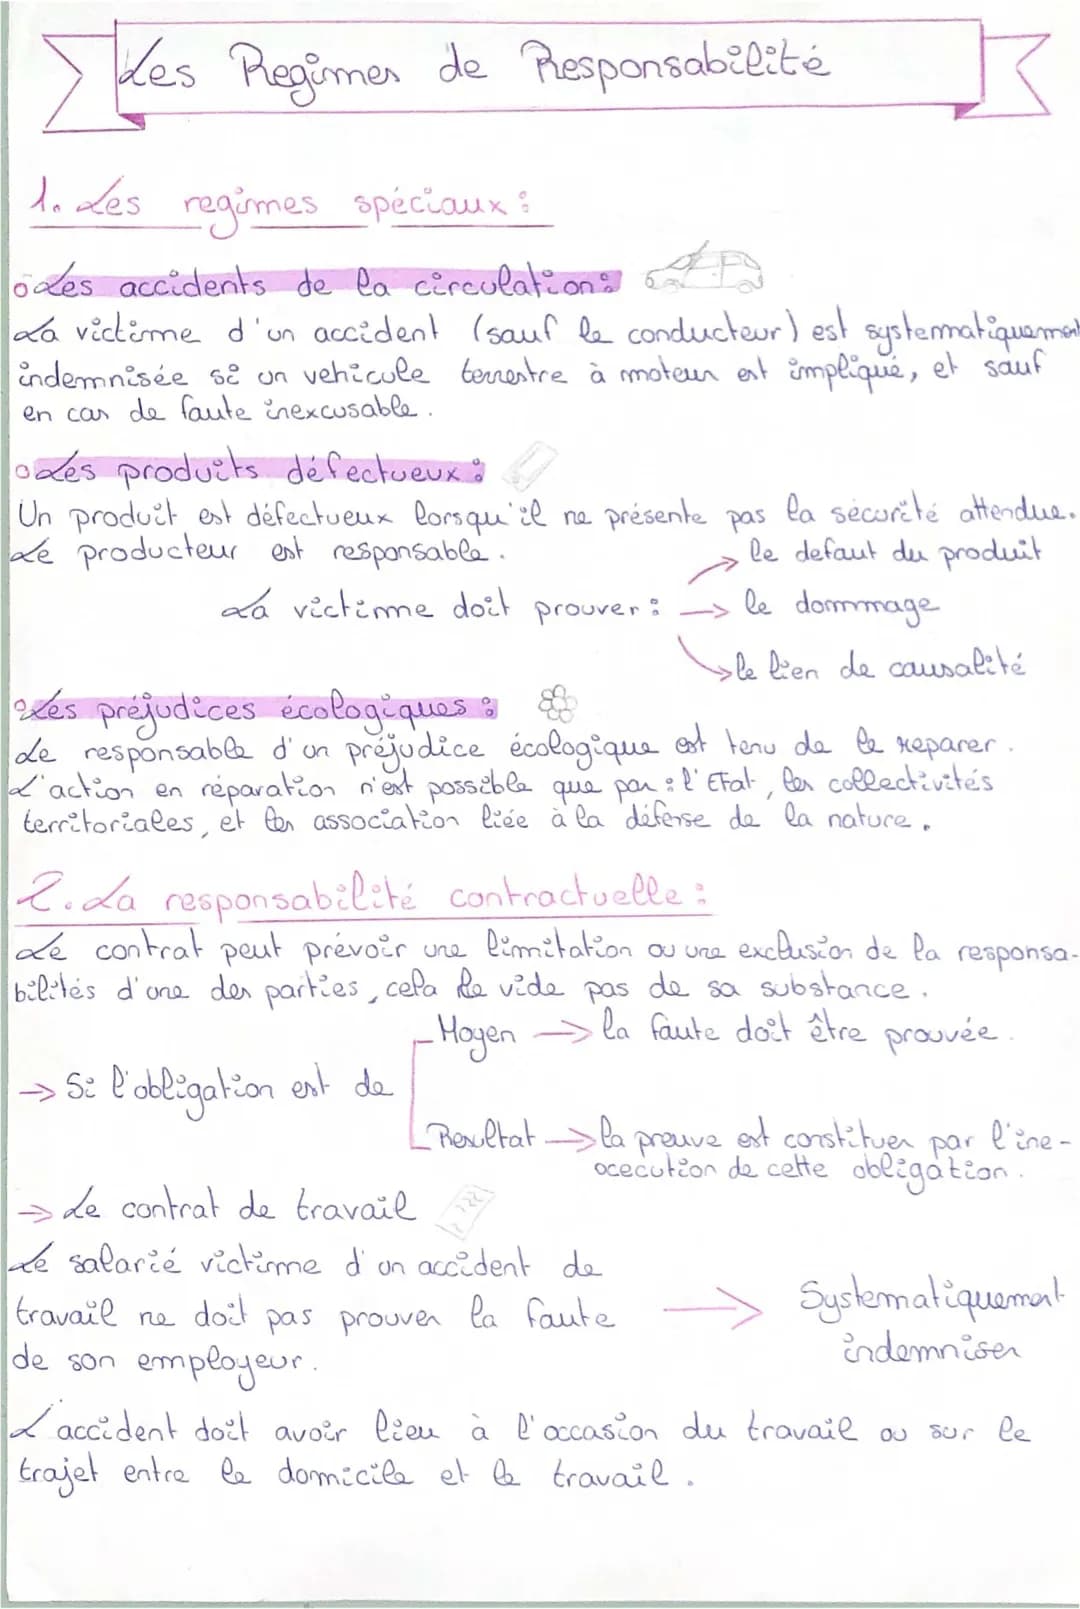 Les Regimes de Responsabilité
1. Les regimes spéciaux :
Les accidents de la circulation :
La victime d'un accident (sauf le conducteur) est systematiquement
indemnisée si un vehicule terrestre à moteur est impliqué, et sauf
en cas de faute inexcusable.
Les produits défectueux :
Un produit est défectueux lorsqu'il ne présente pas la sécurité attendue.
Le producteur est responsable.
→ le defaut du produit
La victime doit prouver : → le dommage
→ le lien de causalité
Les préjudices écologiques :
Le responsable d'un préjudice écologique est tenu de le reparer.
L'action en réparation n'est possible que par : l'Etat, les collectivités
territoriales, et les association liée à la défense de la nature.
2. La responsabilité contractuelle :
Le contrat peut prévoir une limitation ou une exclusion de la responsa-
bilités d'une des parties, cela le vide pas de sa substance.
Moyen → la faute doit être prouvée.
→ Si l'obligation est de
Resultat → la preuve est constituer par l'ine-
xecution de cette obligation.
→ Le contrat de travail
Le salarié victime d'un accident de
travail ne doit pas prouver la faute → Systematiquement
de son employeur. indemniser
L'accident doit avoir lieu à l'occasion du travail ou sur le
trajet entre le domicile et le travail.